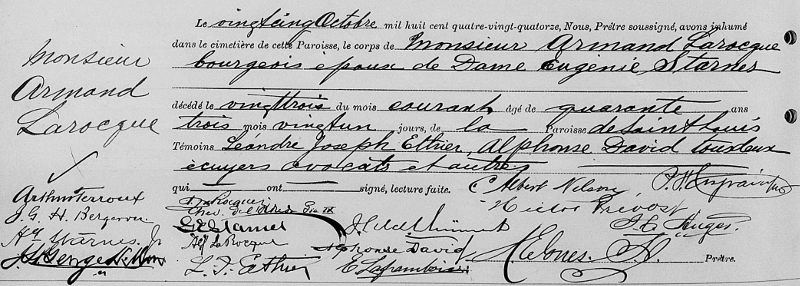 Monsieur
Armand
Larocque
Le vingt cinq Octobre mil huit cent quatre-vingt-quatorze, Nous, Prêtre soussigné, avons inhumé
dans le cimetière de cette Paroisse, le corps de Monsieur Armand Larocque
bourgeois epoux de Dame Eugénie Starnes
décédé le vingt trois du mois courant âgé de quarante ans
trois mois vingt un jours, de la Paroisse de Saint Louis
Témoins Leandre Joseph Ethier, Alphonse David tous deux
ecuyers avocats et autres
qui ont signé, lecture faite. C Albert Nelson
Arthur Terroux
Victor Prevost
J. G. H. Bergeron
Hy Starnes Jr
Alphonse David
L. J. Ethier
E Laframboise
Prêtre.